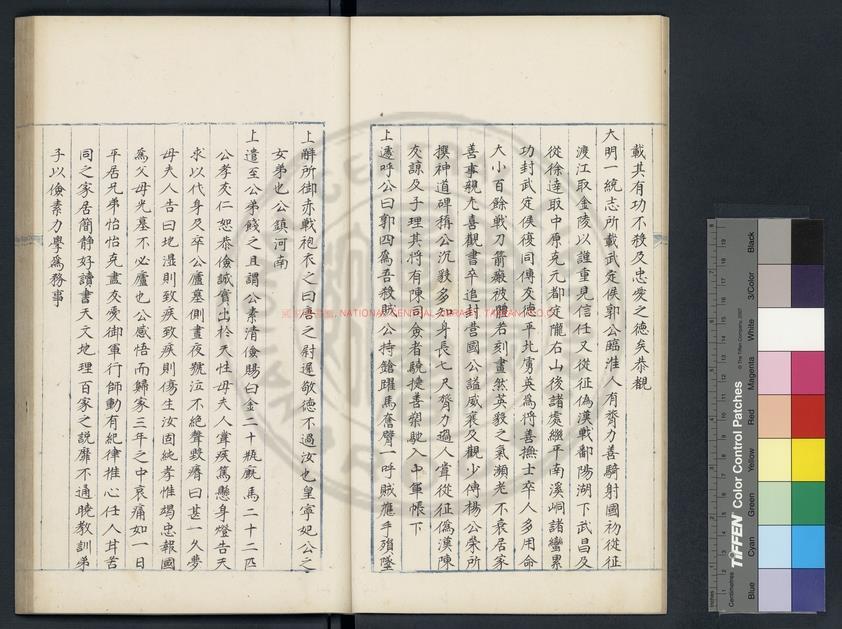 載其有功不殺及忠愛之德矣恭覩
大明一統志所載武定侯郭公臨淮人有膂力善騎射國初從征
渡江取金陵以誰重見信任又從征偽漢戰鄱陽湖下武昌及
從徐達取中原克元都定隴右山後諸處繼平南溪峒諸蠻累
功封武定侯復同傅友德平北虜英為將善撫士卒人多用命
大小百餘戰刀箭瘢被體若刻畫然英毅之氣瀕老不衰居家
善事親尤喜觀書卒追封營國公謚威襄又觀少傅楊公榮所
撰神道碑稱公沉毅多知身長七尺膂力過人嘗從征偽漢陳
友諒及子理其將有陳同僉者驍捷善槊馳入中軍帳下
上遽呼公曰郭四為吾殺賊公持鎗躍馬奮臂一呼賊應手殞墜
上解所御赤戰袍衣之曰唐之尉遲敬德不過汝也皇寧妃公之
女弟也公鎮河南
上遣至公弟餞之且謂公素清儉賜白金二十瓶廐馬二十二匹
公孝友仁恕恭儉誠實出於天性母夫人嘗疾篤懸身燈告天
求以代身及卒公廬墓側晝夜號泣不絕聲毀瘠日甚一久夢
母夫人告曰地濕則致疾致疾則傷生汝固純孝惟竭忠報國
為父母光墓不必廬也公感悟而歸家三年之中哀痛如一日
平居兄弟怡怡克盡友愛御軍行師動有紀律推心任人甘苦
同之家居簡靜好讀書天文地理百家之說靡不通曉教訓弟
子以儉素力學為務事
國家圖書館, NATIONAL CENTRAL LIBRARY, TAIWAN, R.O.C.
TIFFEN Color Control Patches
© The Tiffen Company, 2007
Blue
Cyan
Green
Yellow
Red
Magenta
White
3/Color
Black
Inches
Centimetres